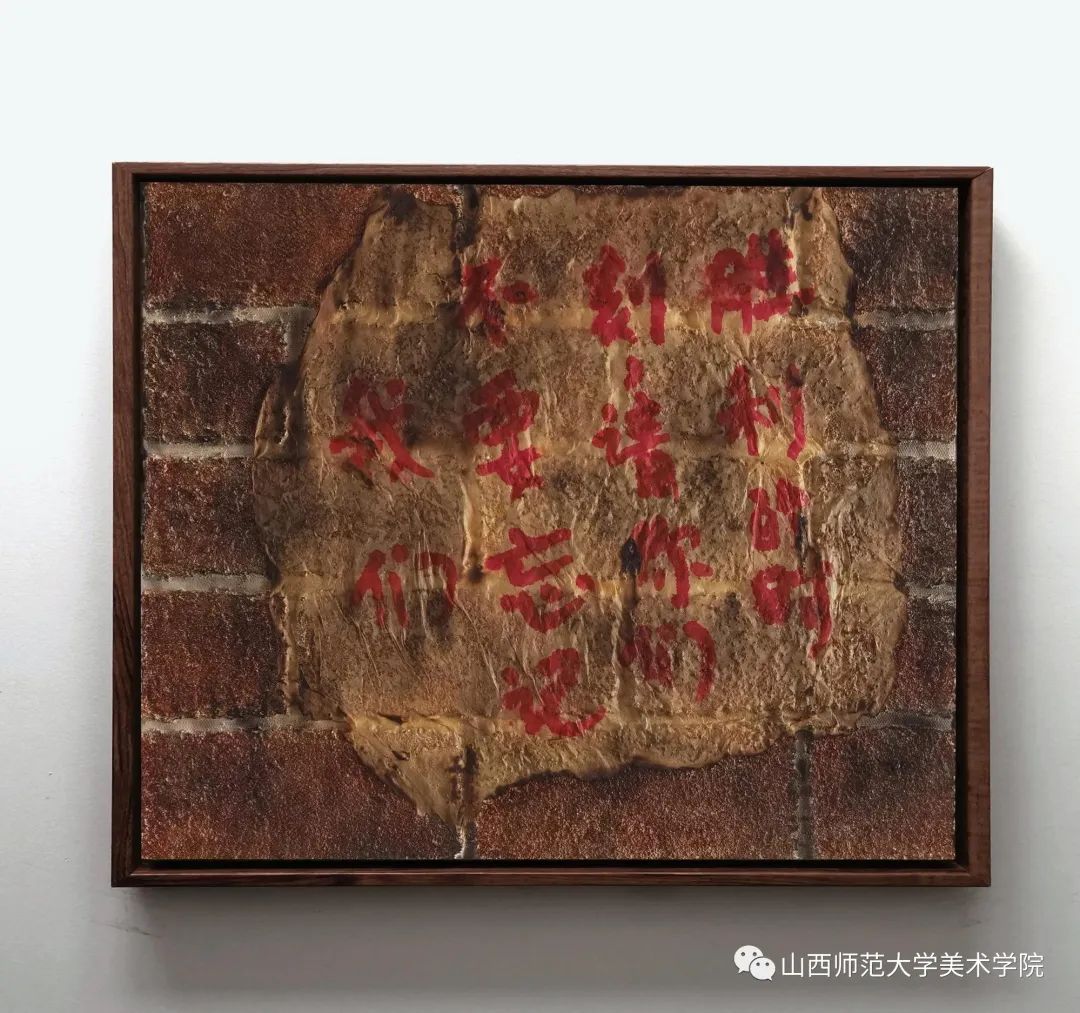 胜利的时
刻，请你们
不要忘记
我们
山西师范大学美术学院